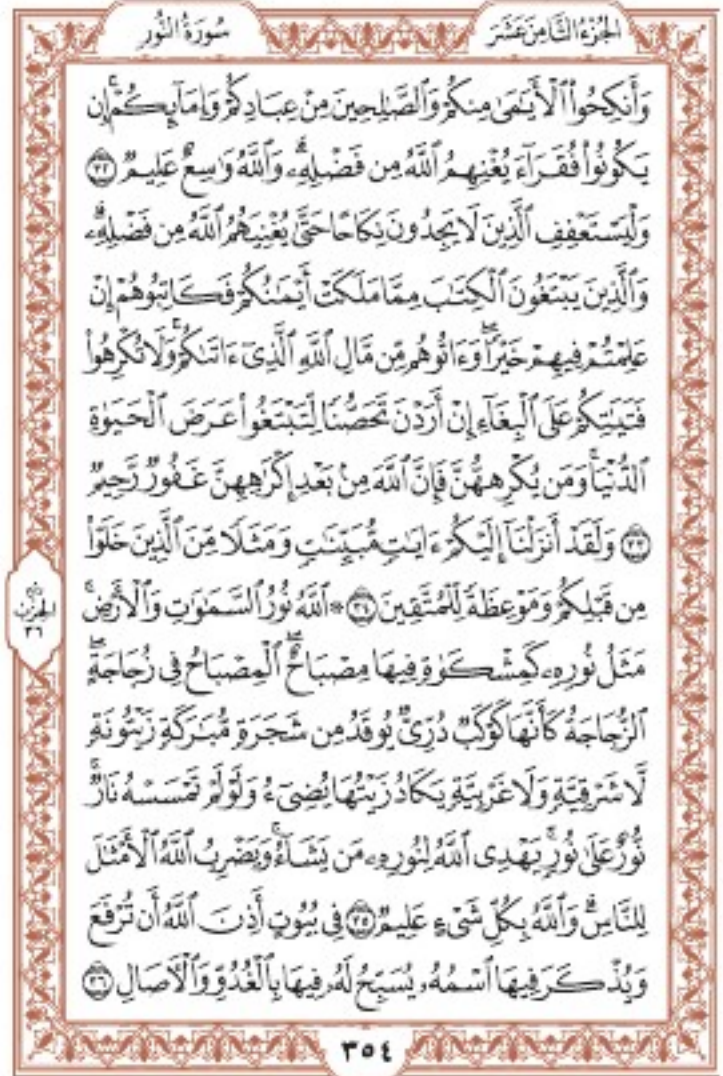 الجُزْءُ الثَّامِنَ عَشَرَ
سُورَةُ النُّورِ
وَأَنكِحُوا۟ ٱلۡأَيَٰمَىٰ مِنكُمۡ وَٱلصَّٰلِحِينَ مِنۡ عِبَادِكُمۡ وَإِمَآئِكُمۡۚ إِن
يَكُونُوا۟ فُقَرَآءَ يُغۡنِهِمُ ٱللَّهُ مِن فَضۡلِهِۦۗ وَٱللَّهُ وَٰسِعٌ عَلِيمٞ ٣٢
وَلۡيَسۡتَعۡفِفِ ٱلَّذِينَ لَا يَجِدُونَ نِكَاحًا حَتَّىٰ يُغۡنِيَهُمُ ٱللَّهُ مِن فَضۡلِهِۦۗ
وَٱلَّذِينَ يَبۡتَغُونَ ٱلۡكِتَٰبَ مِمَّا مَلَكَتۡ أَيۡمَٰنُكُمۡ فَكَاتِبُوهُمۡ إِنۡ
عَلِمۡتُمۡ فِيهِمۡ خَيۡرٗاۖ وَءَاتُوهُم مِّن مَّالِ ٱللَّهِ ٱلَّذِيٓ ءَاتَىٰكُمۡۚ وَلَا تُكۡرِهُوا۟
فَتَيَٰتِكُمۡ عَلَى ٱلۡبِغَآءِ إِنۡ أَرَدۡنَ تَحَصُّنٗا لِّتَبۡتَغُوا۟ عَرَضَ ٱلۡحَيَوٰةِ
ٱلدُّنۡيَاۚ وَمَن يُكۡرِههُّنَّ فَإِنَّ ٱللَّهَ مِنۢ بَعۡدِ إِكۡرَٰهِهِنَّ غَفُورٞ رَّحِيمٞ
٣٣ وَلَقَدۡ أَنزَلۡنَآ إِلَيۡكُمۡ ءَايَٰتٖ مُّبَيِّنَٰتٖ وَمَثَلٗا مِّنَ ٱلَّذِينَ خَلَوۡا۟
مِن قَبۡلِكُمۡ وَمَوۡعِظَةٗ لِّلۡمُتَّقِينَ ٣٤ ۞ ٱللَّهُ نُورُ ٱلسَّمَٰوَٰتِ وَٱلۡأَرۡضِۚ
مَثَلُ نُورِهِۦ كَمِشۡكَوٰةٖ فِيهَا مِصۡبَاحٌۖ ٱلۡمِصۡبَاحُ فِي زُجَاجَةٍۖ
ٱلزُّجَاجَةُ كَأَنَّهَا كَوۡكَبٞ دُرِّيّٞ يُوقَدُ مِن شَجَرَةٖ مُّبَٰرَكَةٖ زَيۡتُونَةٖ
لَّا شَرۡقِيَّةٖ وَلَا غَرۡبِيَّةٖ يَكَادُ زَيۡتُهَا يُضِيٓءُ وَلَوۡ لَمۡ تَمۡسَسۡهُ نَارٞۚ
نُّورٌ عَلَىٰ نُورٖۚ يَهۡدِي ٱللَّهُ لِنُورِهِۦ مَن يَشَآءُۚ وَيَضۡرِبُ ٱللَّهُ ٱلۡأَمۡثَٰلَ
لِلنَّاسِۗ وَٱللَّهُ بِكُلِّ شَيۡءٍ عَلِيمٞ ٣٥ فِي بُيُوتٍ أَذِنَ ٱللَّهُ أَن تُرۡفَعَ
وَيُذۡكَرَ فِيهَا ٱسۡمُهُۥ يُسَبِّحُ لَهُۥ فِيهَا بِٱلۡغُدُوِّ وَٱلۡأٓصَالِ ٣٦
الحِزْب
٣٦
٣٥٤